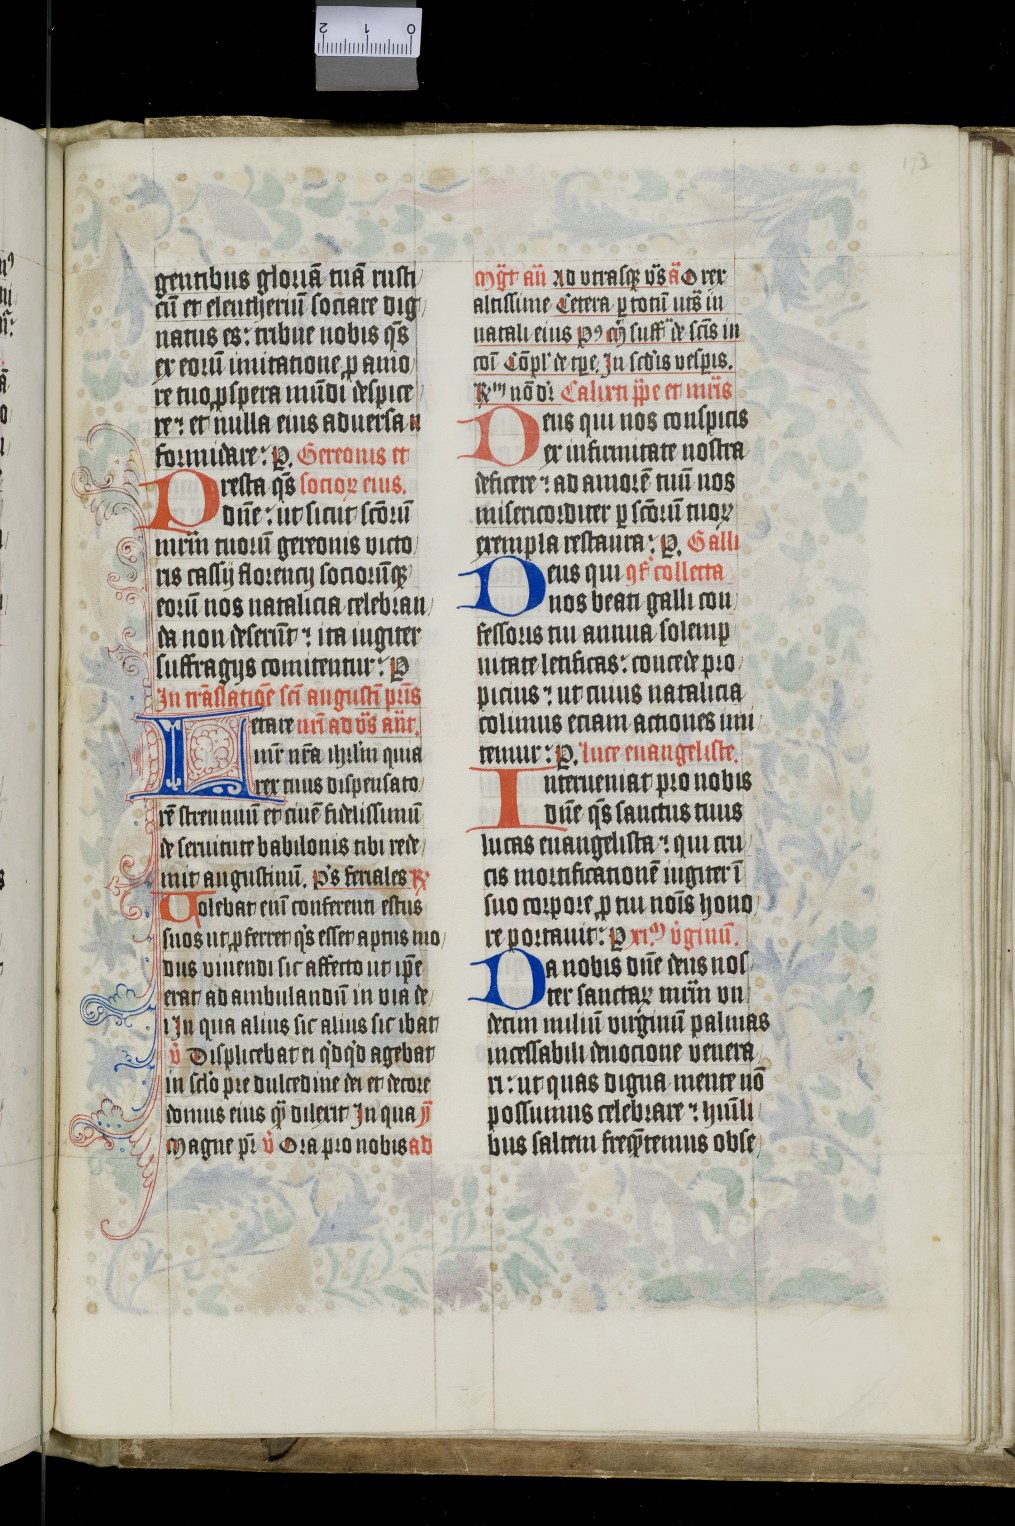 gentibus gloriã tuã rusti
cũ et eleutheriũ sociare dig
natus es: tribue nobis qs̃
ex eorũ imitatione ꝓ amo
re tuo ꝓspera mũdi despice
re: et nulla eius aduersa
formidare: P. Gereonis et
Presta qs̃ socioꝝ eius.
dñe: ut sicut scõrũ
mr̃m tuorũ gereonis victo
ris cassij florencij sociorũqꝫ
eorũ nos natalicia celebran
da non deserũt: ita iugiter
suffragijs comitentur: P
In trãslatiõe scĩ augustĩ pr̃is
Letare mr̃i ad vs̃ añt.
mr̃ nr̃a ihrlm quia
rex tuus dispensato
rẽ strennuũ et ciuẽ fidelissimũ
de seruitute babilonis tibi rede
mit augustinũ. Ps̃ feriales R
Volebat enĩ conferenti estus
suos ut ꝓferret qs̃ esset aptus mo
dus viuendi sic affecto ut ip̃e
erat ad ambulandũ in via de
i In qua alius sic alius sic ibat
v̾ Displicebat ei qdqd agebat
in sclo pre dulcedine dei et decore
domus eius quã dilexit In qua
Magne pr̃ v̾ Ora pro nobis ad
Mgt̃ añ Ad vtrasqꝫ vs̃ ã O rex
altissime Cetera ꝑ totũ ut s̃ in
natali eius P9 suff̃ de scĩs in
coĩ Cõpl' de tpe, In scd'is vesp̃is.
R nõ dr̃ Calixti pp̃e et mr̃is
Deus qui nos conspicis
ex infirmitate nostra
deficere: ad amorẽ tuũ nos
misericorditer ꝑ scõrũ tuoꝝ
exempla restaura: P. Galli
Deus qui 9f' collecta
nos beati galli con
fessoris tui annua solemp
nitate letificas: concede pro
picius: ut cuius natalicia
colimus eciam actiones imi
temur: P. luce euangeliste.
Interueniat pro nobis
dñe qs̃ sanctus tuus
lucas euangelista: qui cru
cis mortificationẽ iugiter ĩ
suo corpore ꝓ tui noĩs hono
re portauit: P xi. m̃ v̾ginũ.
Da nobis dñe deus nos
ter sanctaꝝ mr̃m vn
decim miliũ virginũ palmas
incessabili deuocione venera
ri: ut quas digna mente nõ
possumus celebrare: hũili
bus saltem freq̃temus obse